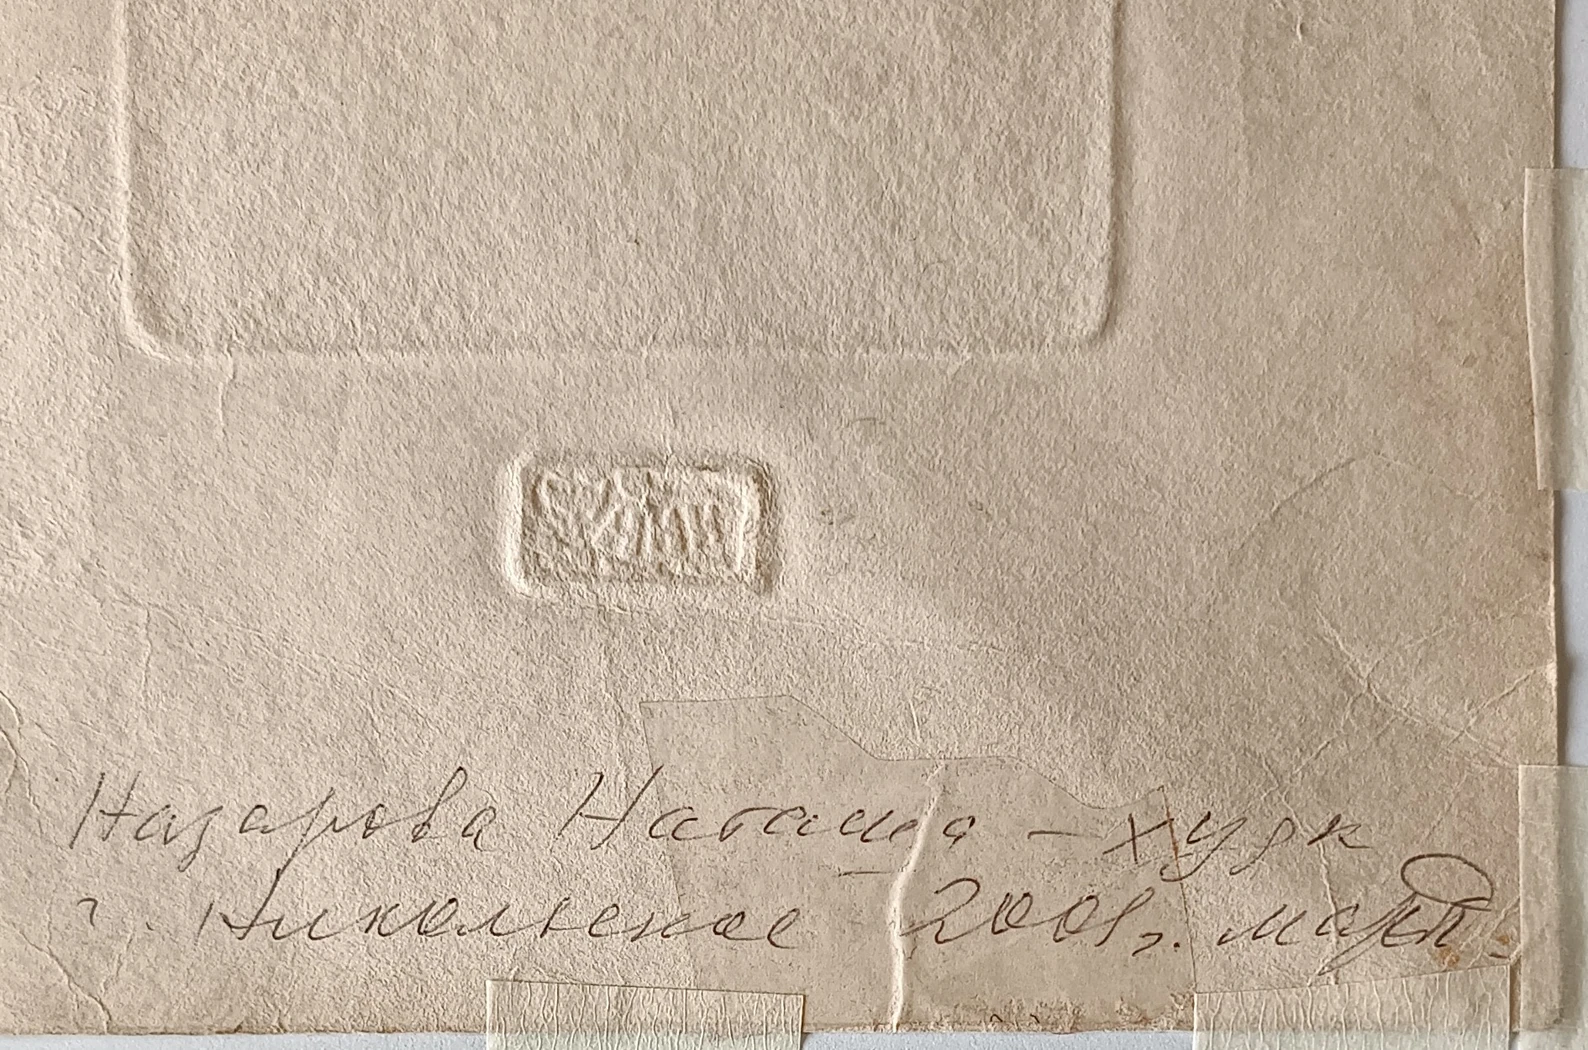 Назарова Наташа – худк
г. Никольское 2001г. март.